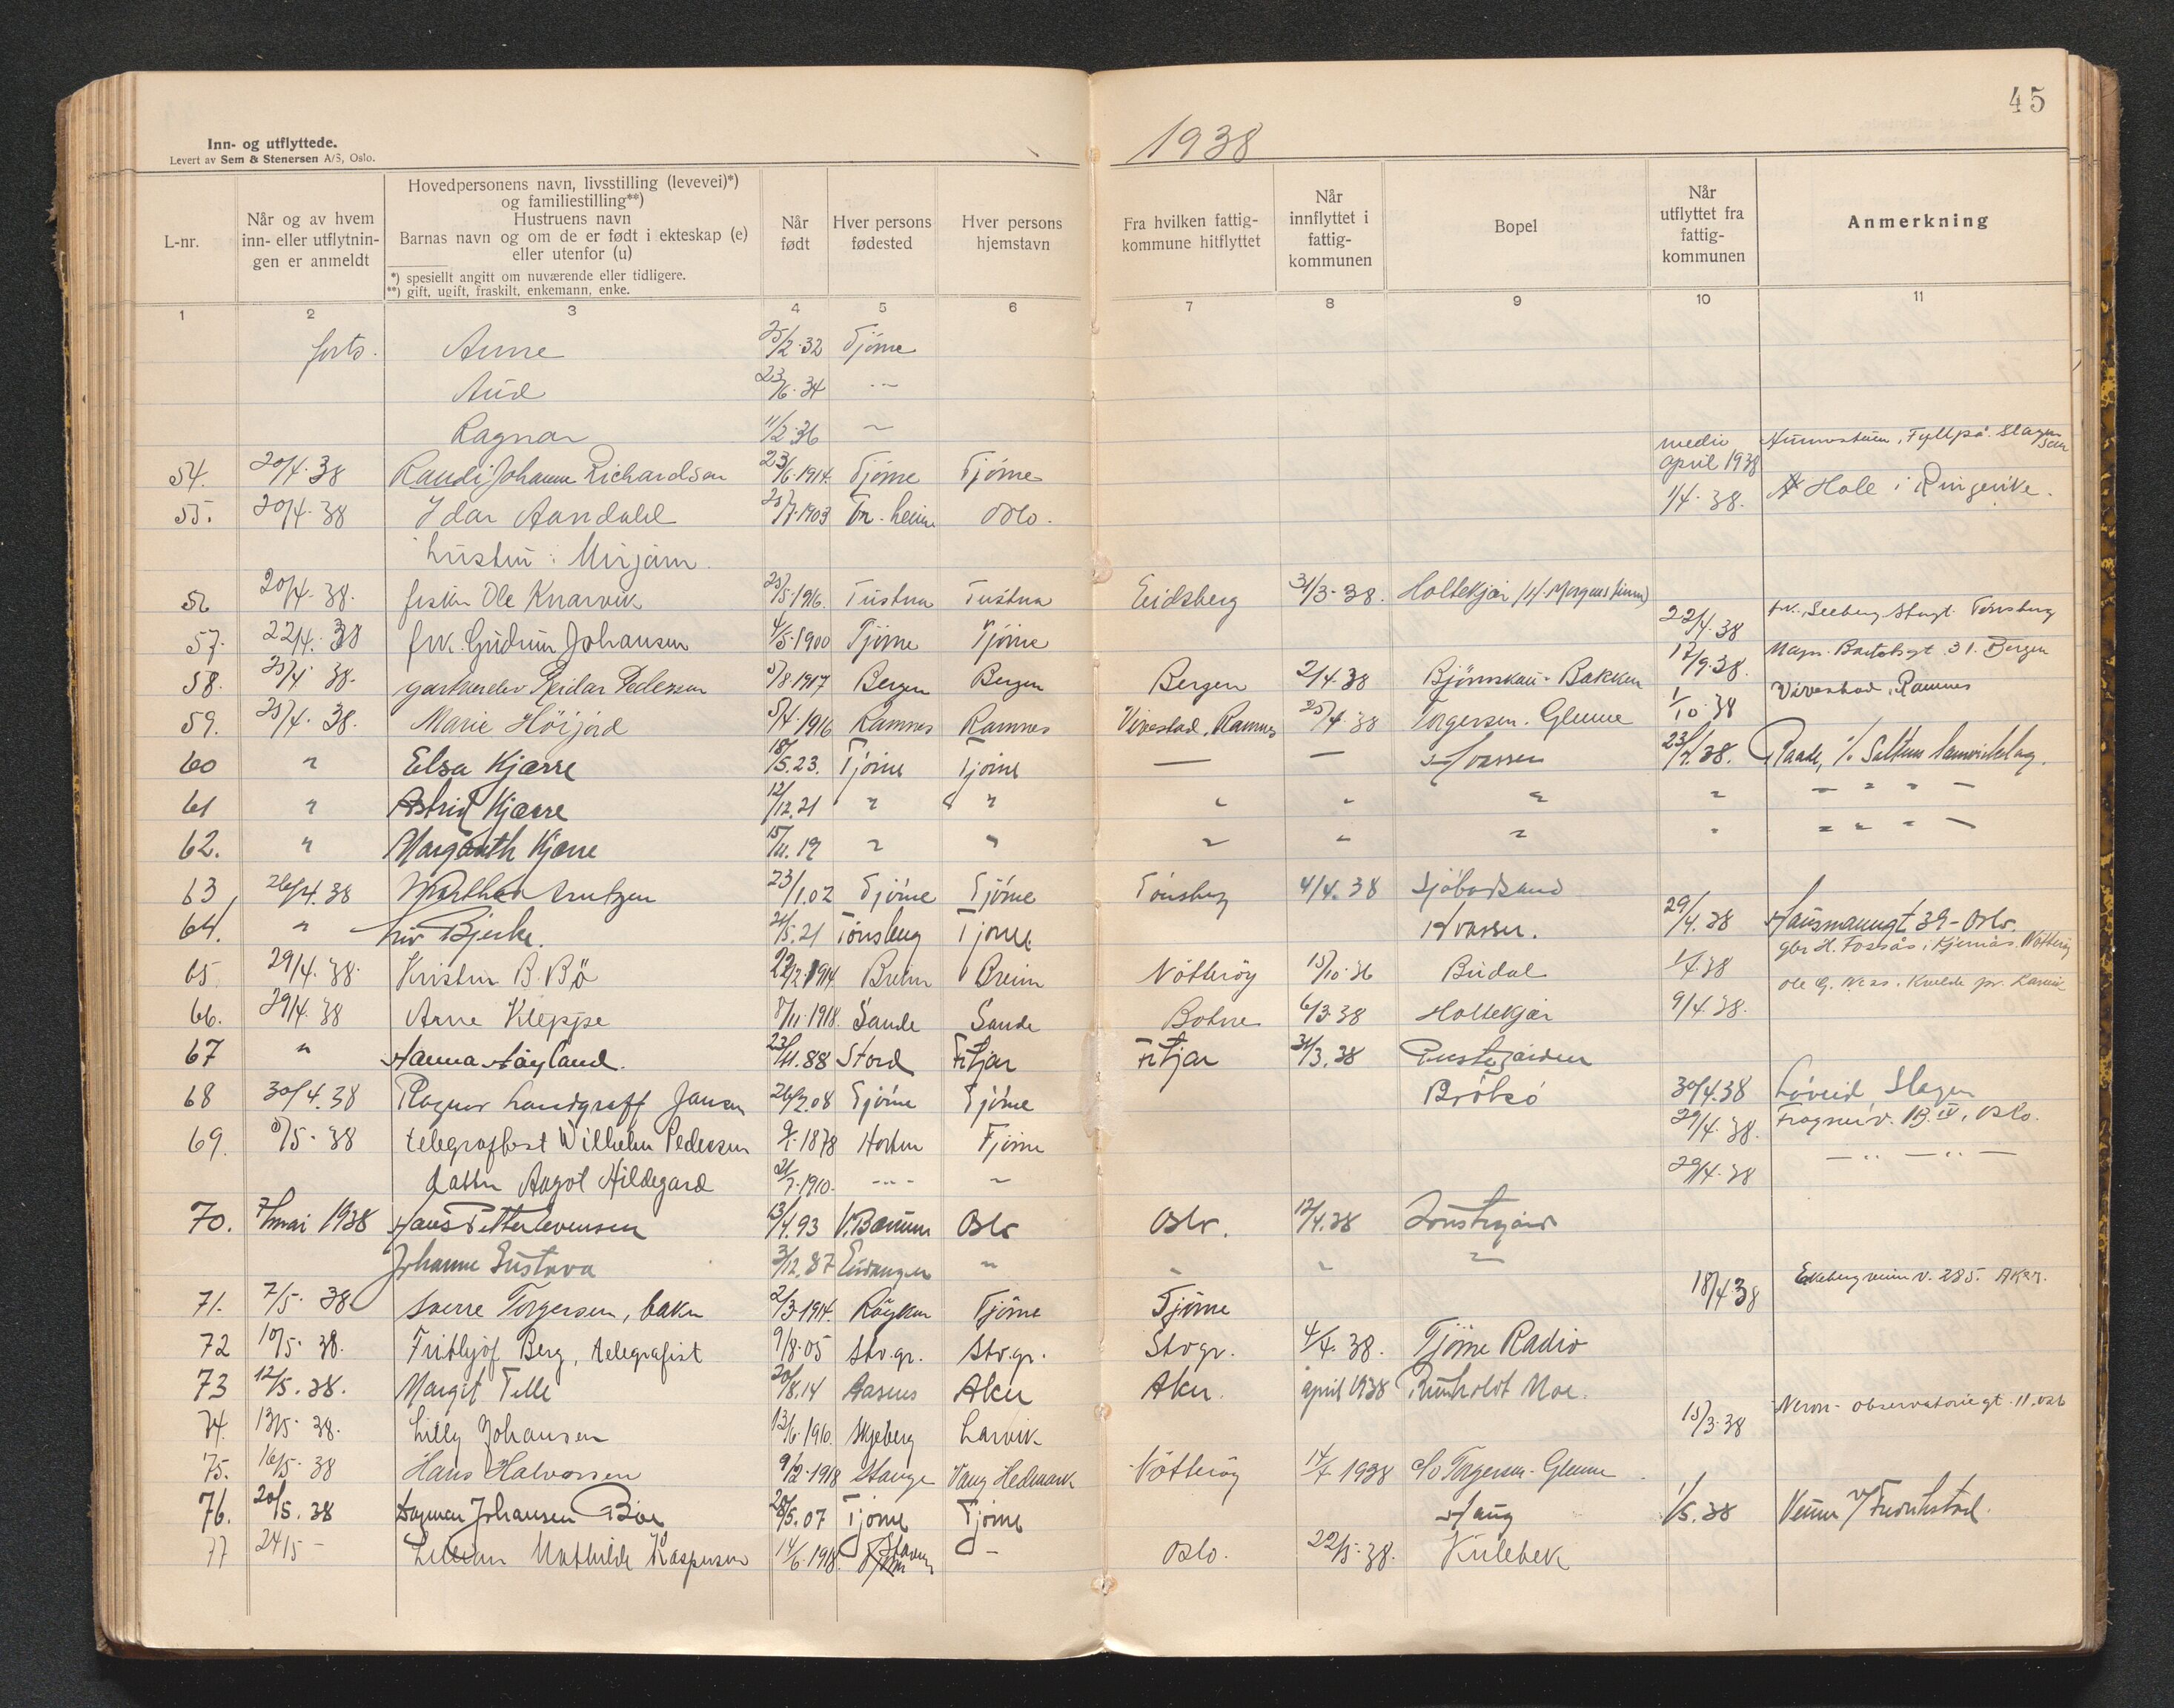 45
Inn- og utflyttede.
Levert av Sem & Stenersen A/S, Oslo.
1938
L-nr.
Når og av hvem inn- eller utflytnin-gen er anmeldt
Hovedpersonens navn, livsstilling (levevei)*) og familiestilling**)
Hustruens navn
Barnas navn og om de er født i ekteskap (e) eller utenfor (u)
*) spesiellt angitt om nuværende eller tidligere.
**) gift, ugift, fraskilt, enkemann, enke.
Når født
Hver persons fødested
Hver persons hjemstavn
Fra hvilken fattig-kommune hitflyttet
Når innflyttet i fattig-kommunen
Bopel
Når utflyttet fra fattig-kommunen
Anmerkning
1 2 3 4 5 6 7 8 9 10 11
forts. Anne 25/2-32 Tjöme
Aud 23/6-34 -"-
Ragnar 11/2-36 "
54. 20/4-38 Randi Johanne Richardsen 23/6-1914 Tjöme Tjöme medio april 1938 Slagen Sem
55. 20/4-38 Idar Aandahl 25/7-1903 Tr.heim Oslo. 1/4-38. Hole i Ringerike.
hustru: Mirjam
56 20/4-38. fisker Ole Knarvik 25/5-1916. Tustna Tustna Eidsberg 31/3-38. Holtekjær
57. 22/4-38 frk. Gudrun Johansen 4/5-1900 Tjöme Tjöme 22/4-38 Tönsberg
58. 25/4-38. Reidar Pedersen 5/8-1917 Bergen Bergen Bergen 2/4-38 Bjömskau-Bakken 17/9-38. 31. Bergen
59. 25/4-38. Marie Höijord 5/4-1916 Ramnes Ramnes Vivestad, Ramnes 25/4-38 Torgersen. Glenne 1/10-38 Vivestad, Ramnes
60 " Elsa Kjærre 18/5.23. Tjöme Tjöme — — Hvasser 23/4.38. Raade,
61 " Astrid Kjærre 12/12.21 " " " " " " - " " -
62. " Margareth Kjærre 15/11.19 " " " " " " - " " -
63, 26/4.38 Marthea Arntzen 23/1.02 Tjöme Tjöme Tönsberg 4/4.38
64. " Liv Bjerke. 21/5.21 Tönsberg Tjöme Hvasser. 29/4.38 Hausmannsgt 39 - Oslo.
65. 29/4-38. Kristen B. Bö 22/2-1914 Breim Breim Nötteröy 15/10-36 Budal 1/4-38
66. 29/4-38 Arne Kleppe 8/11-1918. Sande Sande Botne 6/3-38 Holtekjær 9/4-38.
67 " Hanna Höyland. 23/11.88 Stord Fitjar Fitjar 31/3.38
68 30/4.38 Ragnar Landgraff Jansen 26/2.08 Tjöme Tjöme Brötsö 30/4.38 Löveid, Slagen
69. 5/5-38 telegrafbest Wilhelm Pedersen 9/1-1878 Horten Tjöme 29/4-38. Oslo.
datter Aagot Hildegard 21/7-1910. -"- " 29/4-38 - " - " -
70. 7/mai 1938 Hans Petter Evensen 13/4.93 V.Bærum Oslo Oslo. 12/4.38
Johanne Gustava 3/12.87 Eidanger " " " "
71. 7/5-38 Sverre Torgersen, baker 2/3-1914. Röyken Tjöme Tjöme 18/4-38 Ekebergveien v. 285. Aker.
72 10/5-38. Frithjof Berg, telegrafist 9/8-05 Stv.gr. Stv.gr. Stvgr. 4/4-38. Tjöme Radio
73 12/5.38. Margit Telle 20/8.14 Aker Aker. april 1938 Moe.
74. 13/5-38. Lilly Johansen 13/6-1910. Skjeberg Larvik 15/3-38 Observatoriegt. 11. Oslo
75. 16/5-38 Hans Halvorsen 9/2-1918 Stange Vang Hedmark Nötteröy 14/4 1938 c/o Torgersen-Glenne
76. 20/5.38 Dagmar Johansen Böe 28/5.07 Tjöme Tjöme Haug 1/5.38 Veum v/ Fredrikstad.
77 24/5 - Lillian Mathilde Kaspersen 14/6-1918. - Oslo. 22/5-38. Kulebek